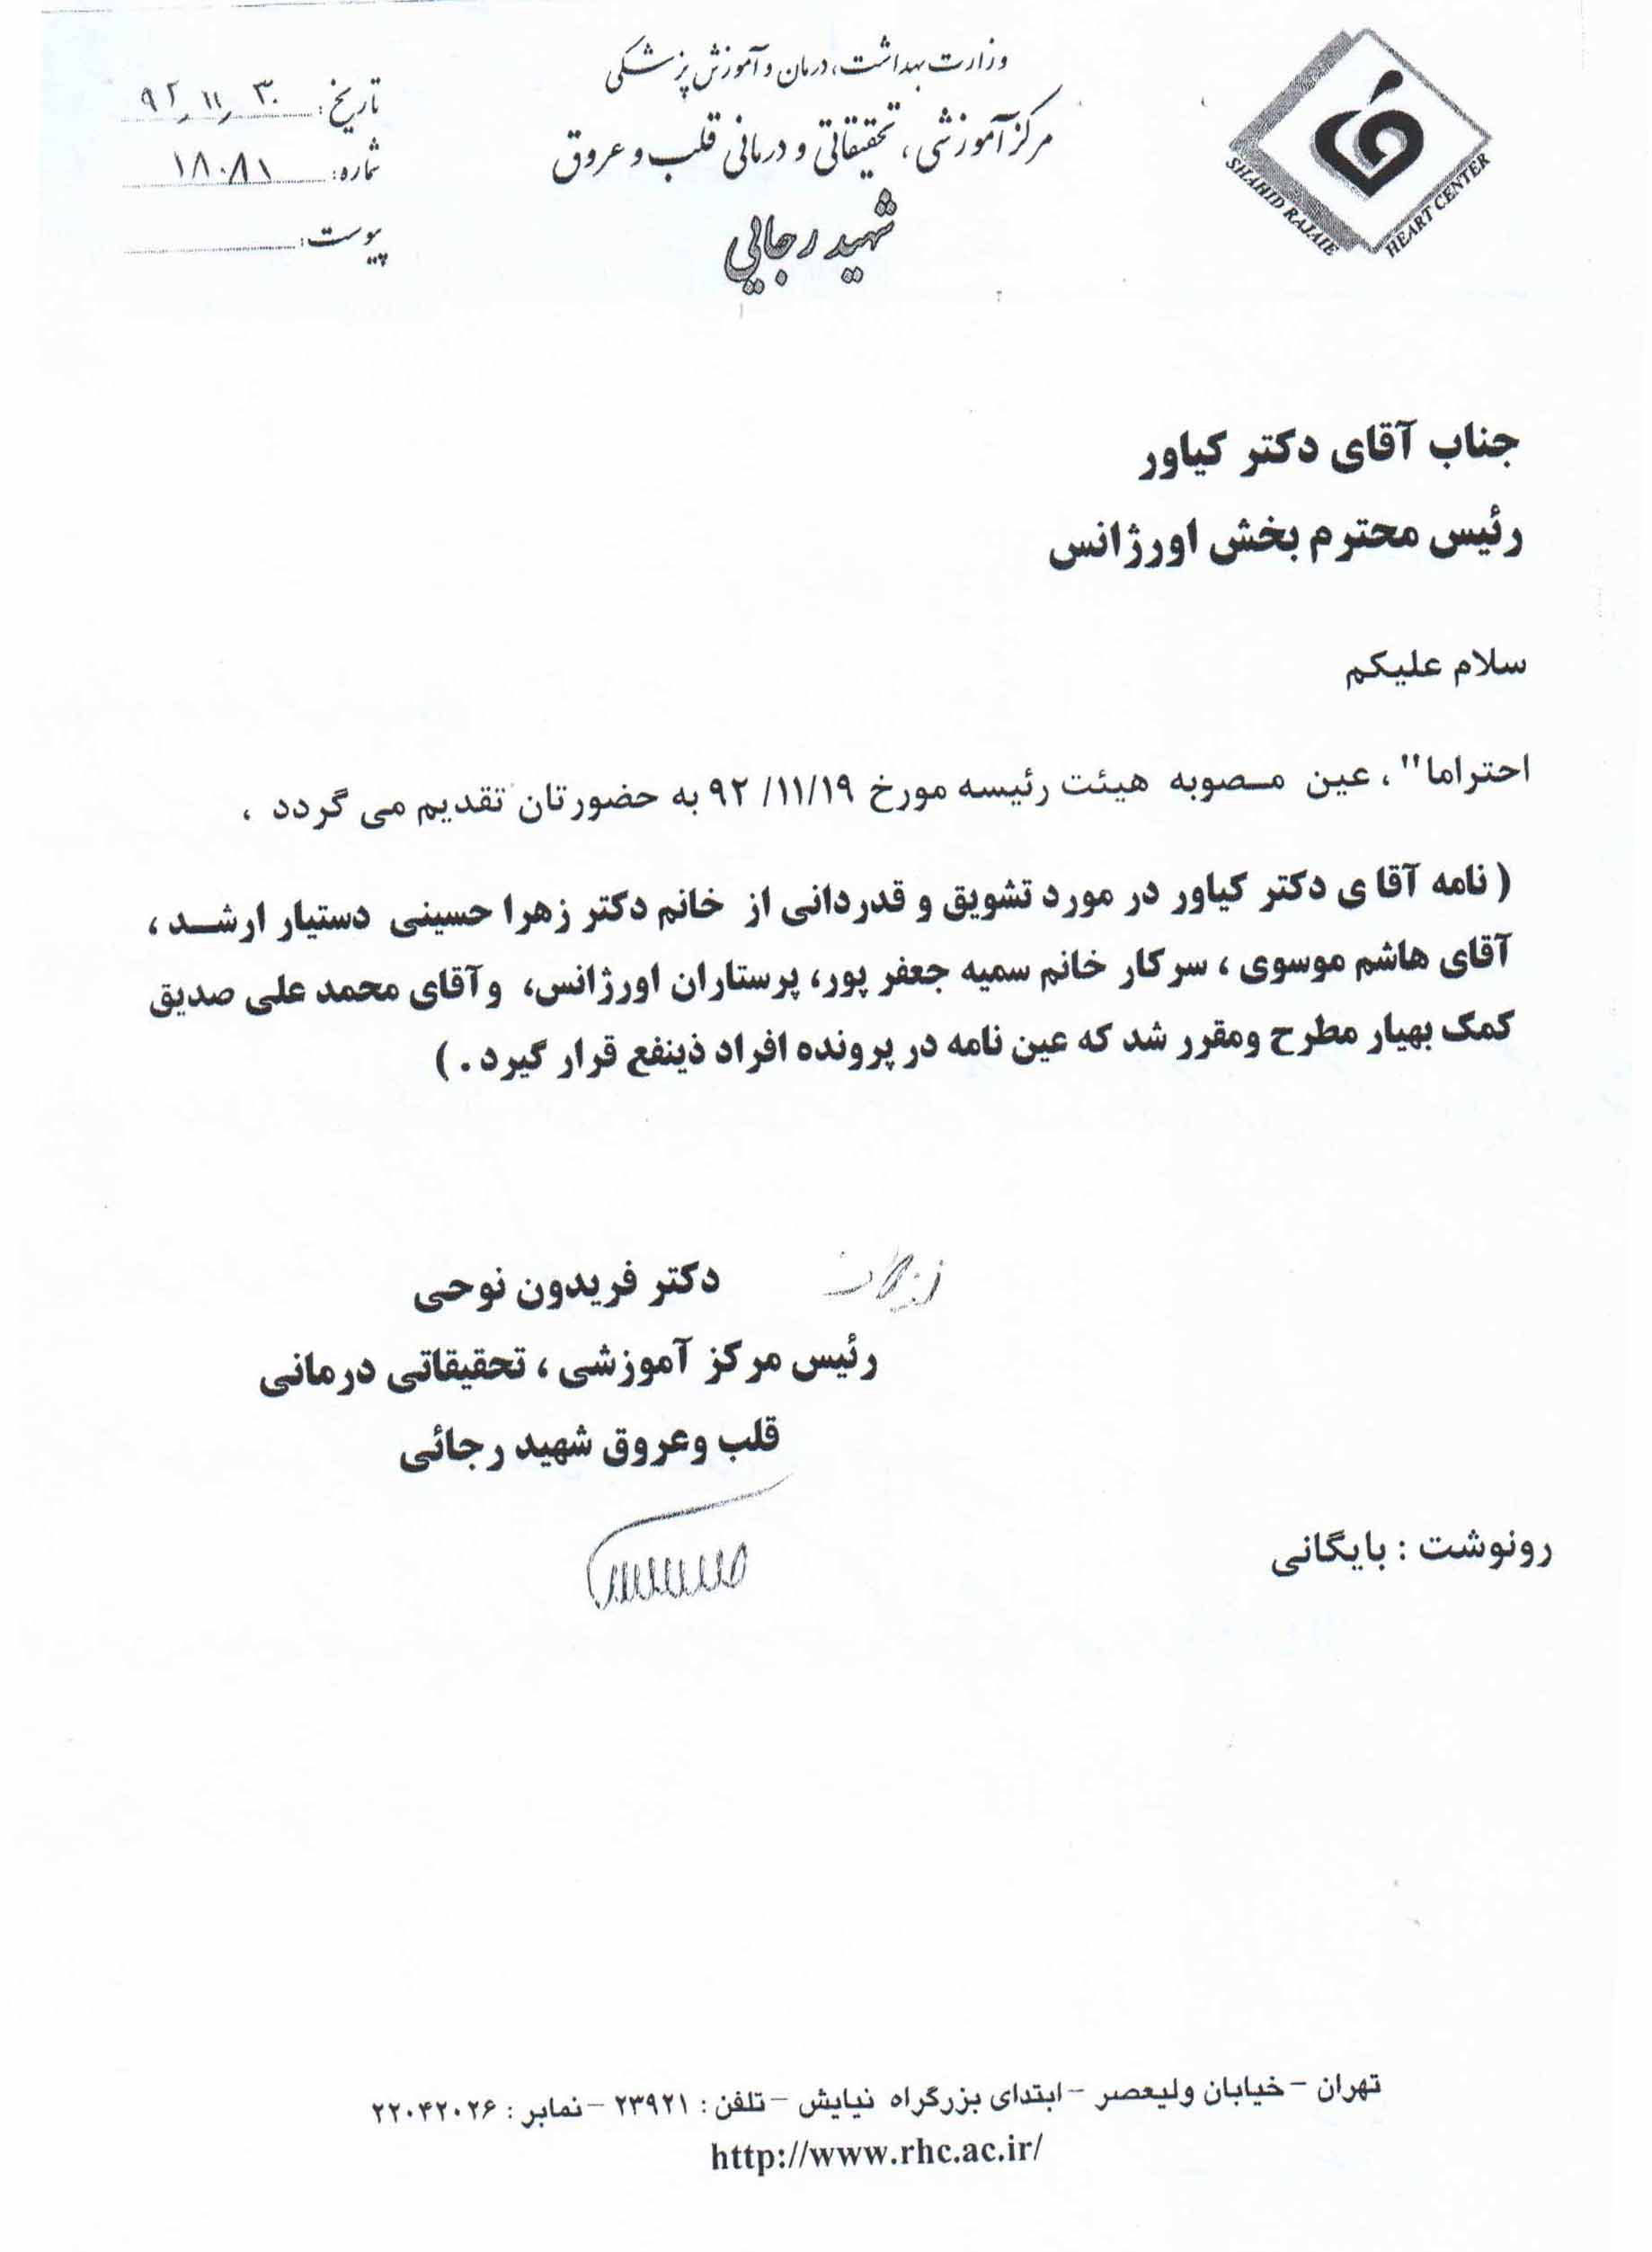 وزارت بهداشت، درمان و آموزش پزشکی
مرکز آموزشی، تحقیقاتی و درمانی قلب و عروق
شهید رجایی
SHAHID RAJAIE HEART CENTER
تاریخ: ۹۲/۱۱/۳۰
شماره: ۱۸۰۸۱
پیوست:
جناب آقای دکتر کیاور
رئیس محترم بخش اورژانس
سلام علیکم
احتراما" ، عین مصوبه هیئت رئیسه مورخ ۹۲/۱۱/۱۹ به حضورتان تقدیم می گردد ،
( نامه آقا ی دکتر کیاور در مورد تشویق و قدردانی از خانم دکتر زهرا حسینی دستیار ارشد ،
آقای هاشم موسوی ، سرکار خانم سمیه جعفر پور، پرستاران اورژانس، وآقای محمد علی صدیق
کمک بهیار مطرح ومقرر شد که عین نامه در پرونده افراد ذینفع قرار گیرد . )
دکتر فریدون نوحی
رئیس مرکز آموزشی ، تحقیقاتی درمانی
قلب وعروق شهید رجائی
رونوشت : بایگانی
تهران - خیابان ولیعصر - ابتدای بزرگراه نیایش - تلفن : ۲۳۹۲۱ - نمابر : ۲۲۰۴۲۰۲۶
http://www.rhc.ac.ir/